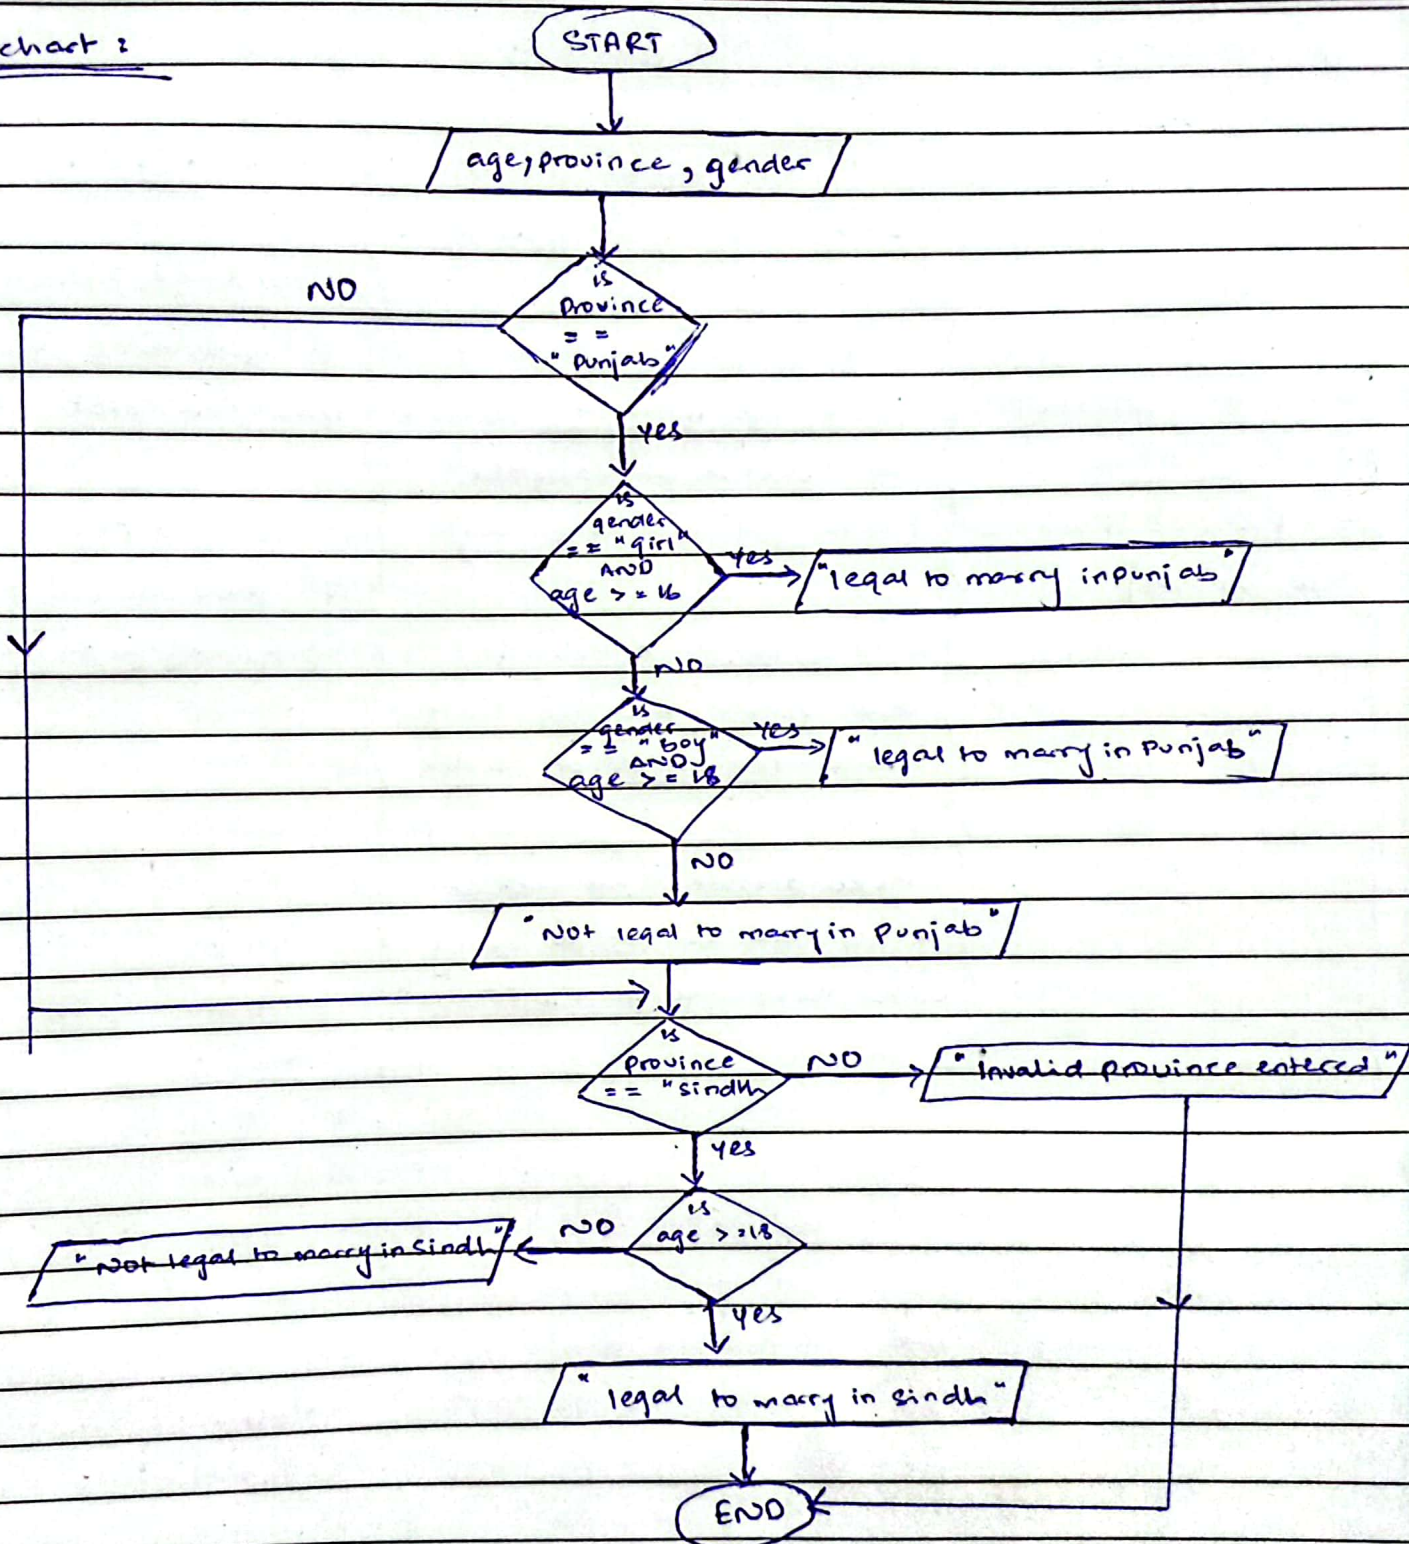 chart :
START
age, province, gender
is
Province
= =
"Punjab"
NO
yes
is
gender
== "girl"
AND
age >= 16
yes
"legal to marry in punjab"
NO
is
gender
== "boy"
AND
age >= 18
yes
"legal to marry in Punjab"
NO
"Not legal to marry in punjab"
is
province
== "sindh
NO
"invalid province entered"
yes
is
age >=18
NO
"Not legal to marry in sindh"
yes
"legal to marry in sindh"
END